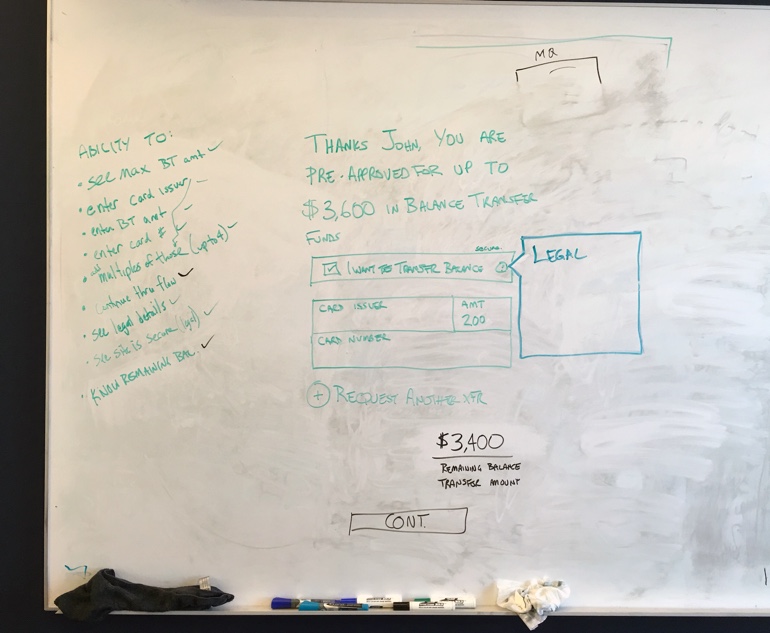 MQ
ABILITY TO:
• see max BT amt. ✓
• enter card issuer
• enter BT amt
• enter card #
• multiples of those (up to 4) ✓
• continue thru flow ✓
• see legal details ✓
• see site is secure (lgl) ✓
• KNOW REMAINING BAL. ✓
THANKS JOHN, YOU ARE
PRE-APPROVED FOR UP TO
$3,600 IN BALANCE TRANSFER
FUNDS
☑ I WANT TO TRANSFER BALANCE
CARD ISSUER
AMT
200
CARD NUMBER
LEGAL
+ REQUEST ANOTHER XFR
$3,400
REMAINING BALANCE
TRANSFER AMOUNT
CONT.